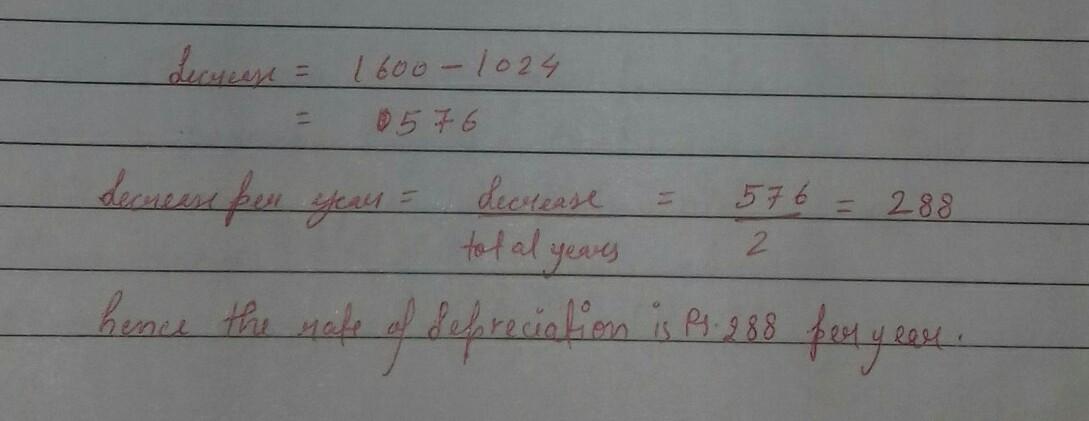 decrease = 1600 - 1024
= 0576
decrease per year = decrease / total years = 576 / 2 = 288
hence the rate of depreciation is Rs. 288 per year.